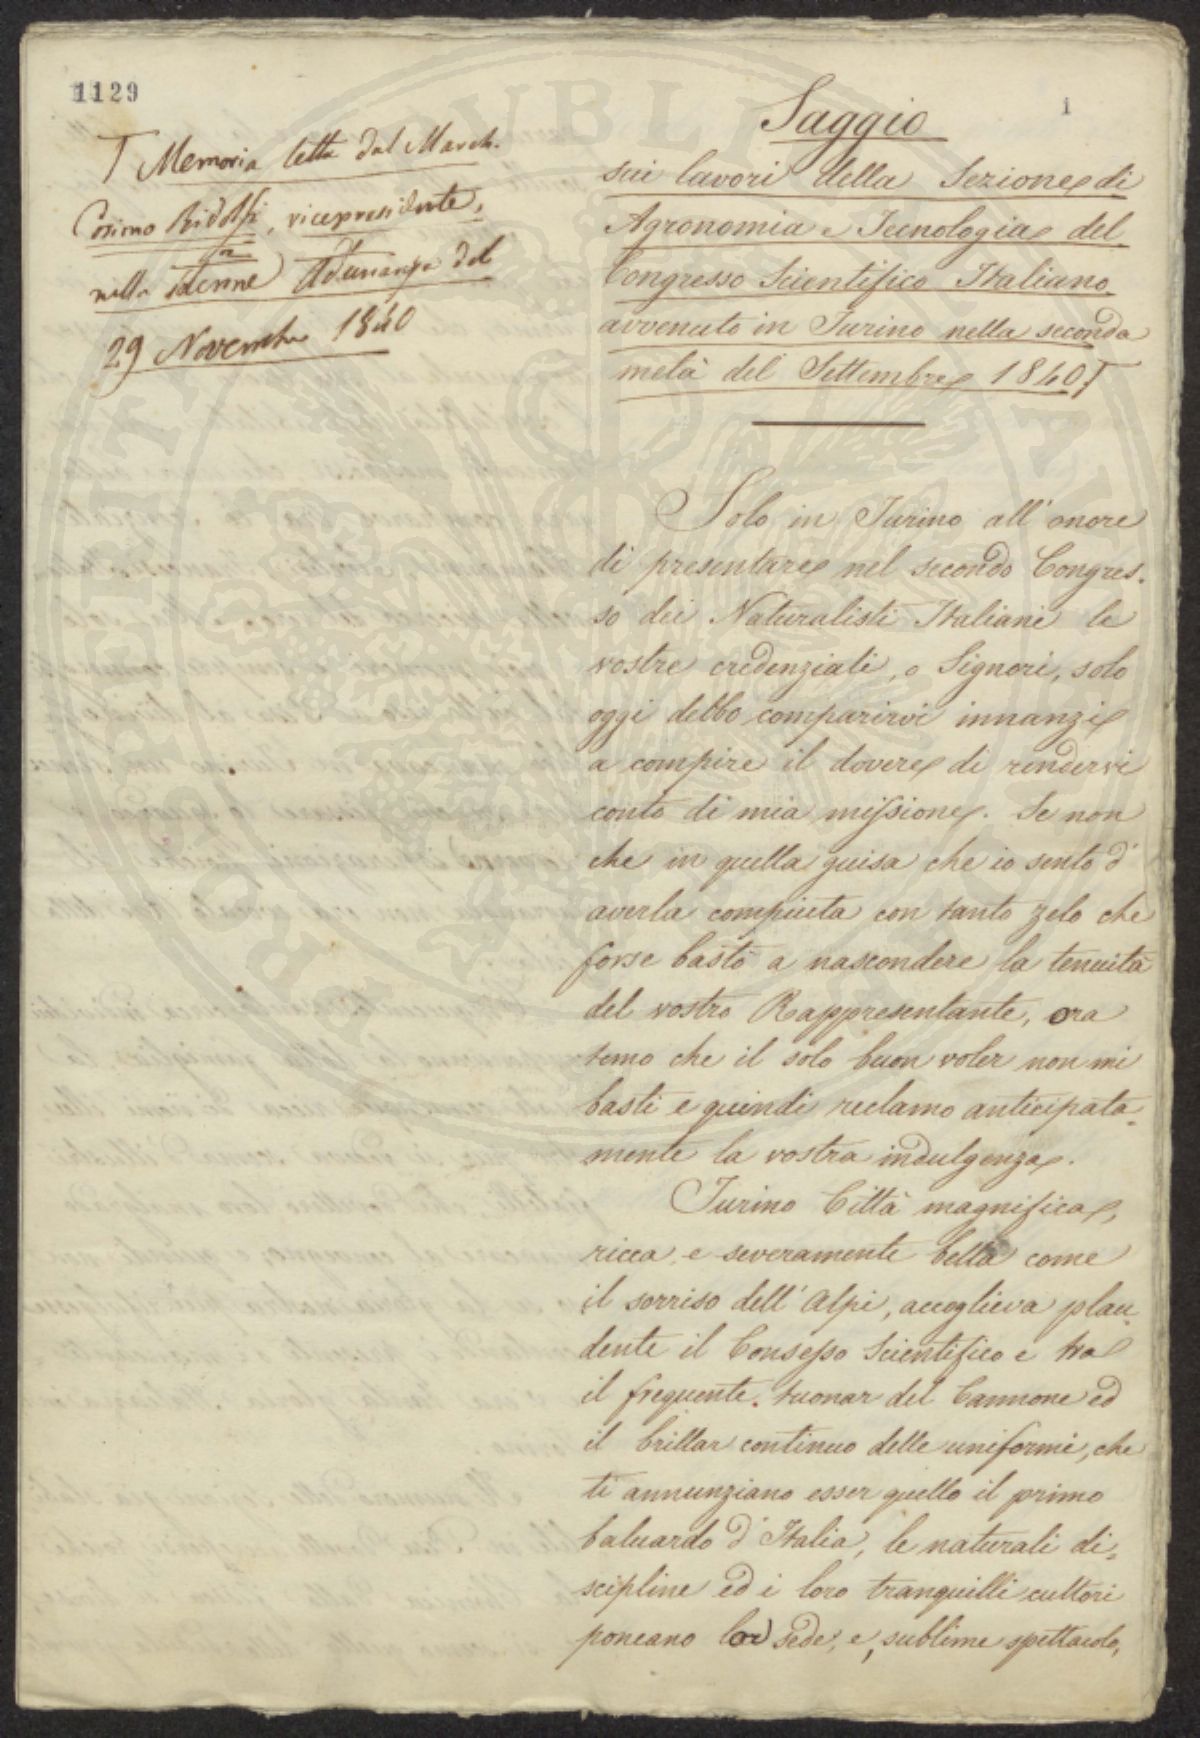 1129
1
T Memoria letta dal March.
Cosimo Ridolfi, vicepresidente,
nella solenne Adunanza del
29 Novembre 1840
Saggio
sui lavori della Sezione di
Agronomia e Tecnologia del
Congresso Scientifico Italiano
avvenuto in Turino nella seconda
metà del Settembre 1840 T
Solo in Turino all'onore
di presentare nel secondo Congres-
so dei Naturalisti Italiani le
vostre credenziali, o Signori, solo
oggi debbo comparirvi innanzi
a compire il dovere di rendervi
conto di mia missione. Se non
che in quella guisa che io sento d'
averla compiuta con tanto zelo che
forse bastò a nascondere la tenuità
del vostro Rappresentante, ora
temo che il solo buon voler non mi
basti e quindi reclamo anticipata-
mente la vostra indulgenza.
Turino Città magnifica,
ricca e severamente bella come
il sorriso dell'Alpi, accoglieva plau-
dente il Consesso Scientifico e tra
il frequente tuonar del Cannone ed
il brillar continuo delle uniformi, che
ti annunziano esser quello il primo
baluardo d'Italia, le naturali di-
scipline ed i loro tranquilli cultori
poneano lor sede, e, sublime spettacolo,